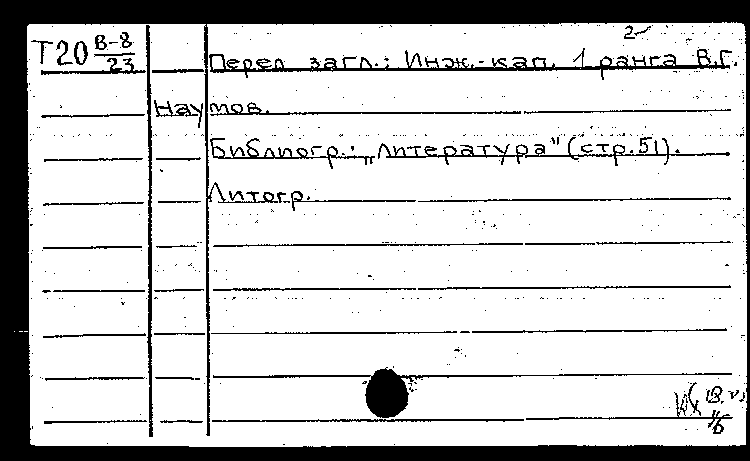 2
Т20 В-8/23
Перед загл.: Инж.-кап. 1 ранга В.Г.
Наумов.
Библиогр.: „Литература" (стр. 51).
Литогр.